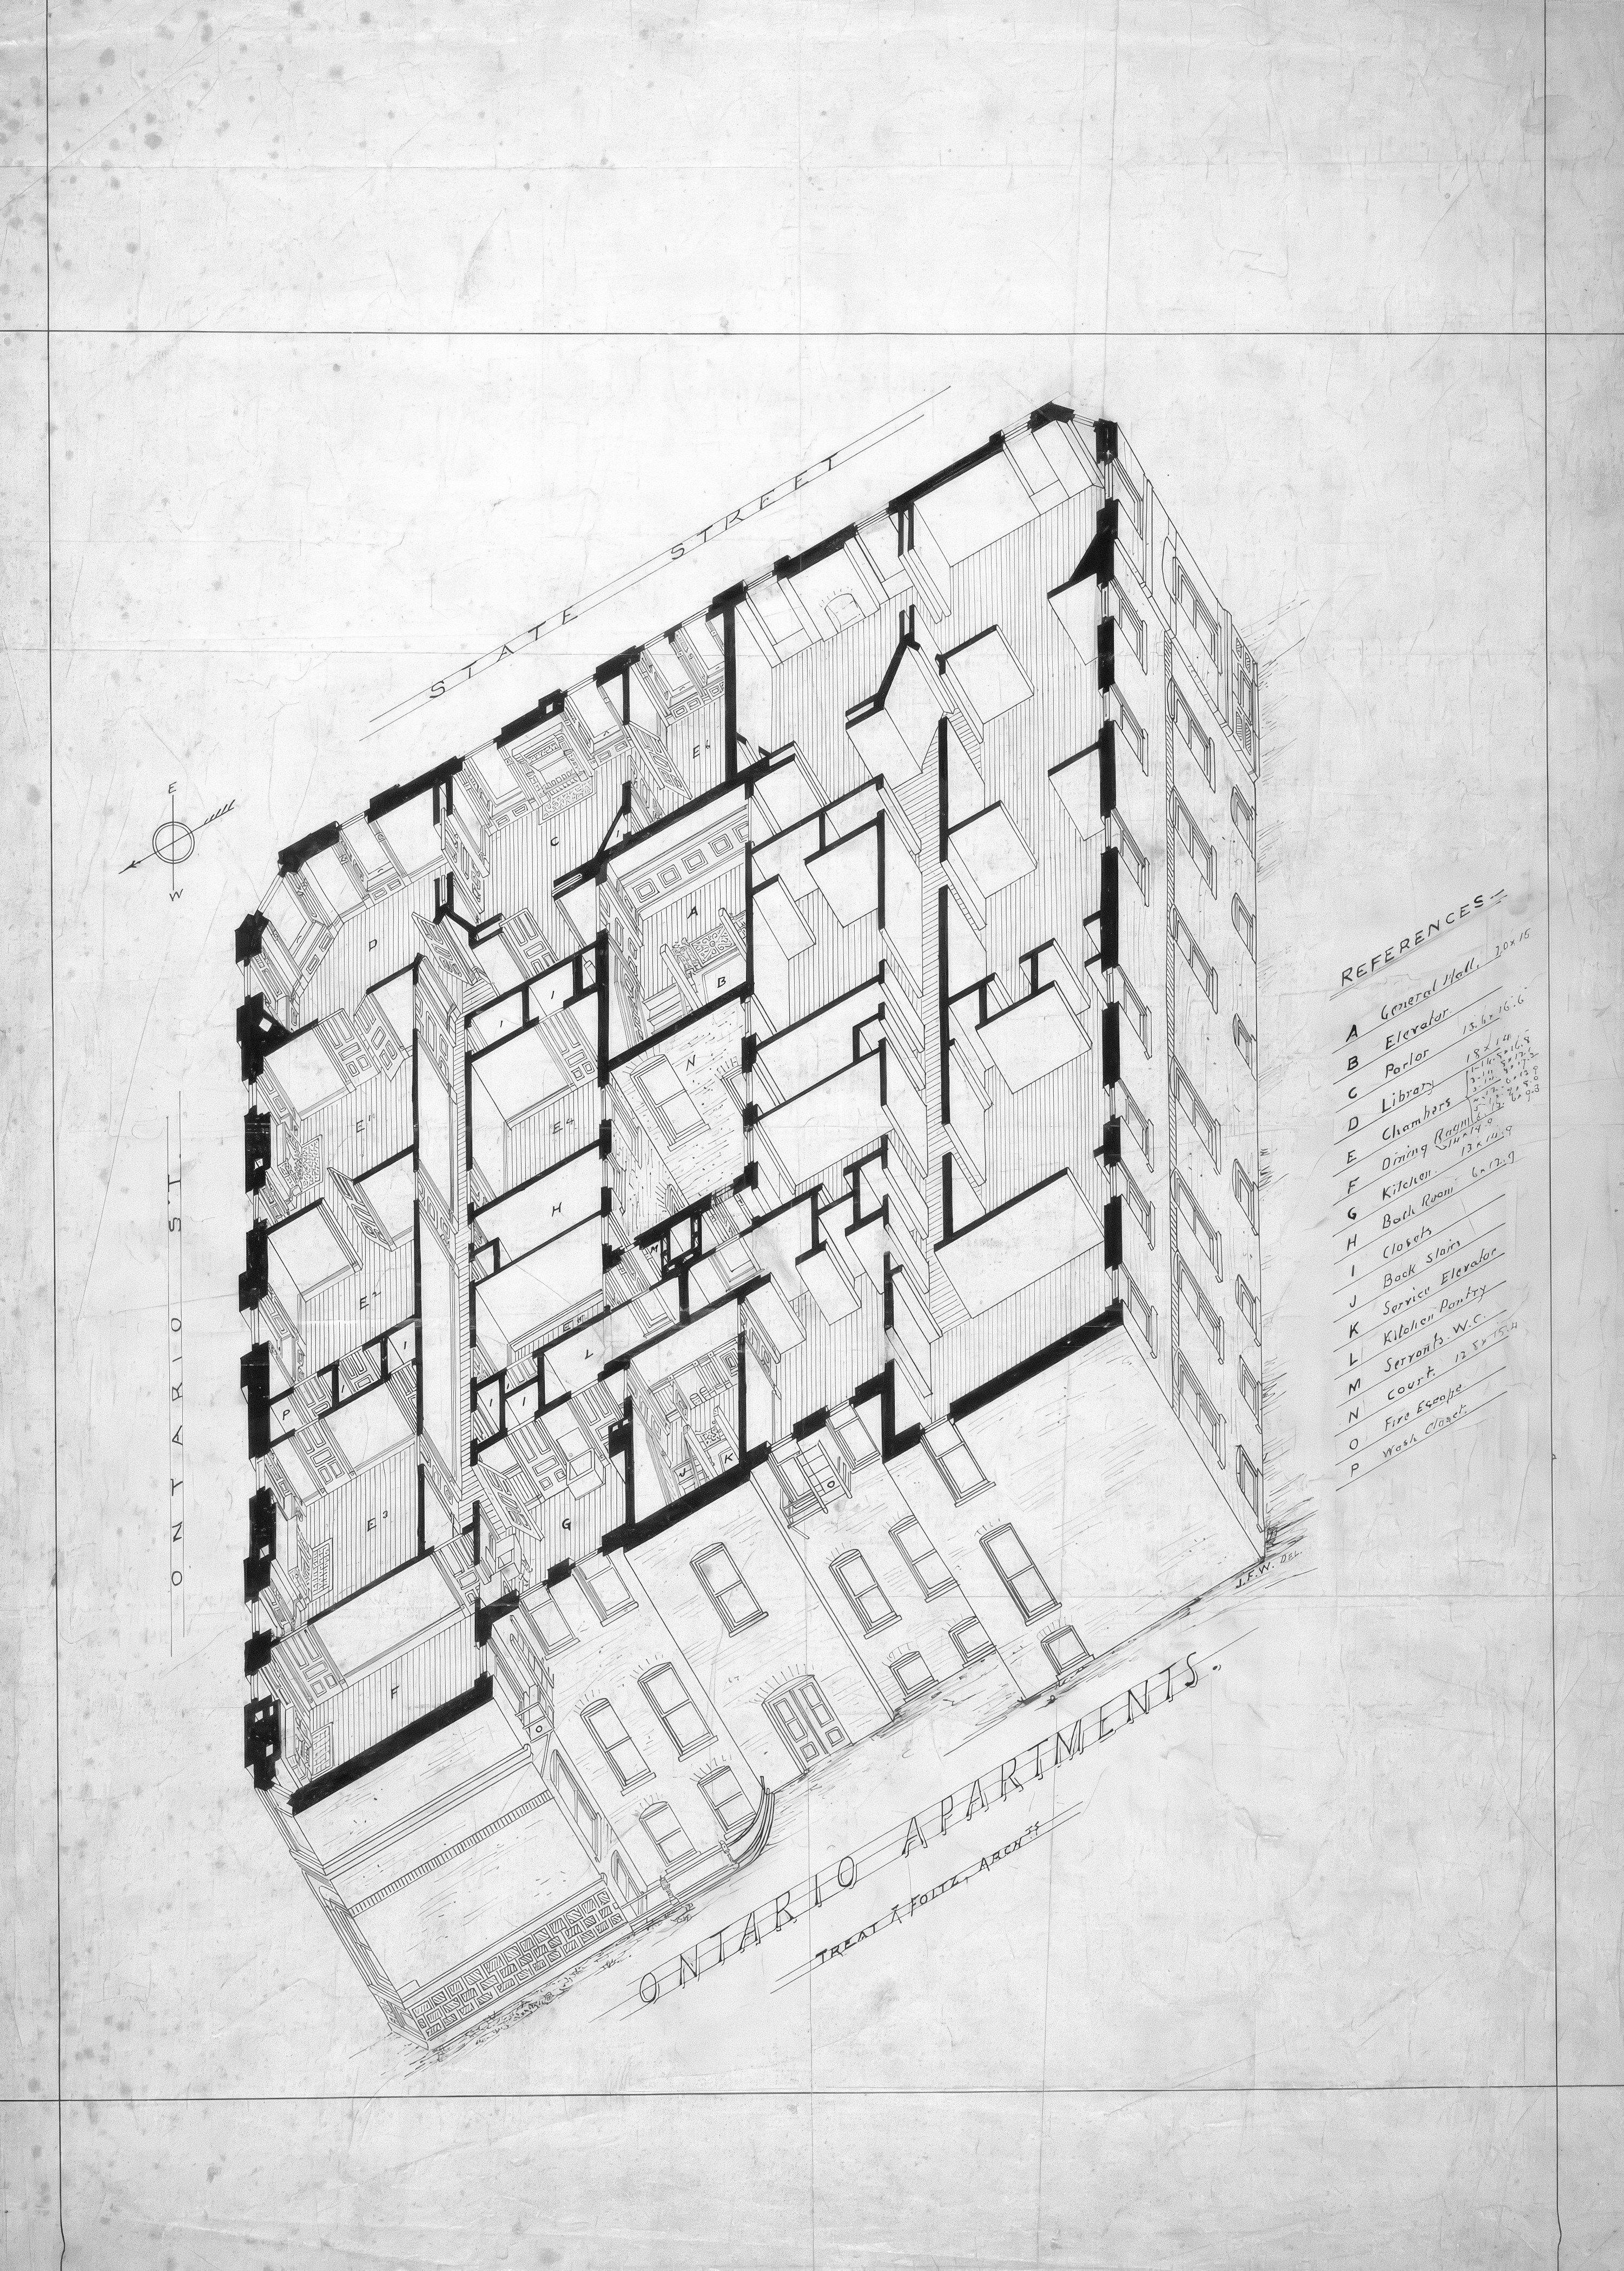 STATE STREET
E
W
ONTARIO ST.
A
B
C
D
E1
E2
E3
E4
E6
F
G
H
I
I
I
I
I
J
K
L
M
N
O
O
P
REFERENCES
A General Hall, 20 x 15
B Elevator
C Parlor 13.6 x 16.6
D Library 18 x 14
E Chambers
F Dining Room
G Kitchen 13 x 14.9
H Bath Room 6 x 12.9
I Closets
J Back Stairs
K Service Elevator
L Kitchen Pantry
M Servants W.C.
N Court.
O Fire Escape
P Wash Closet.
J.F.W. DEL.
ONTARIO APARTMENTS.
TREAT & FOLTZ, ARCHTS